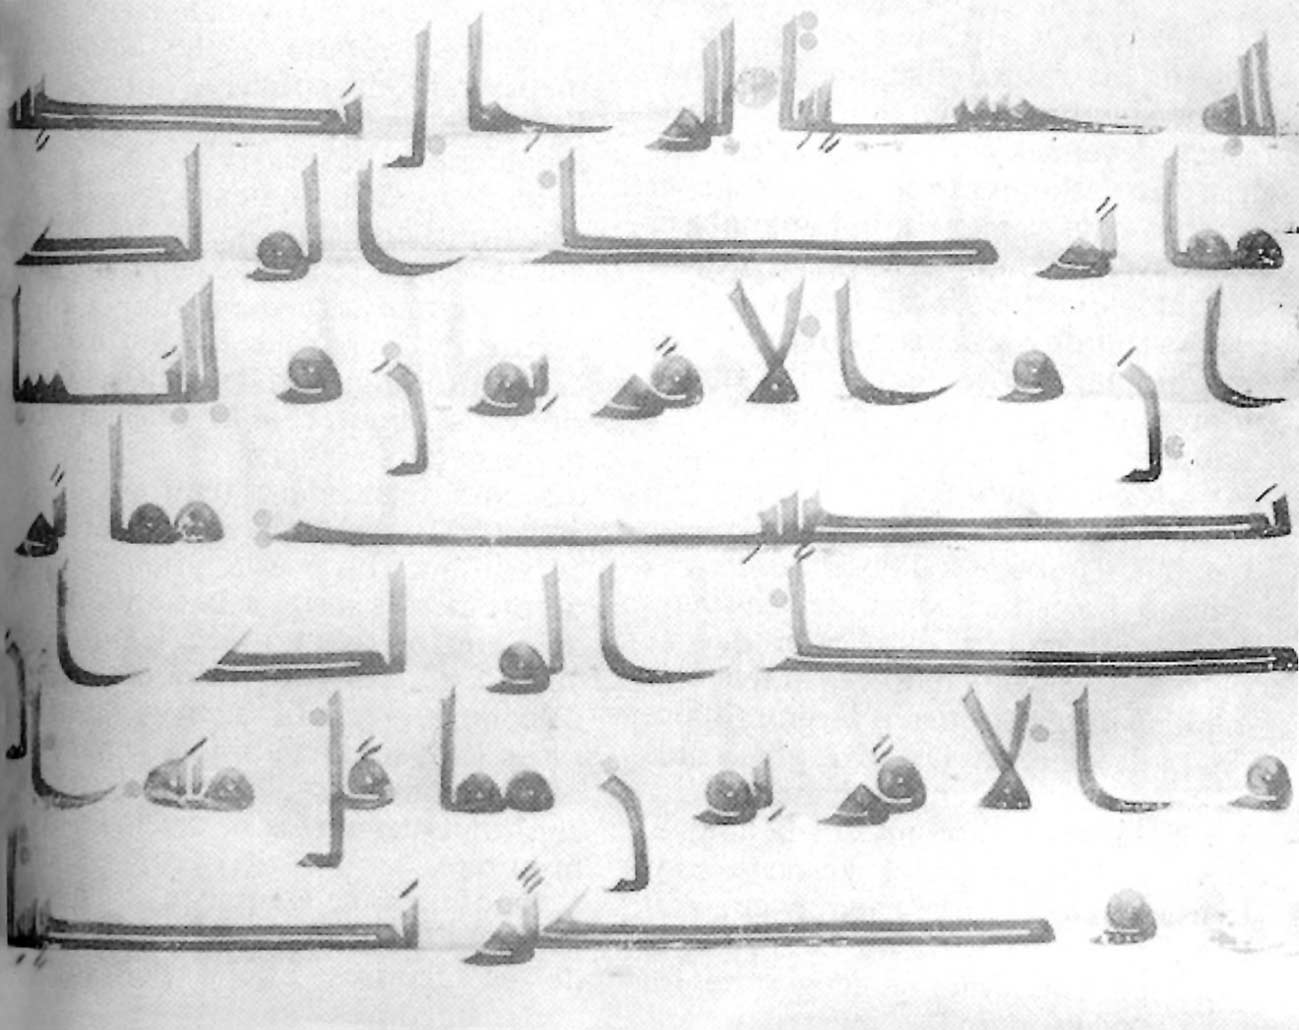 لله حسيبا للرجال نصيب
مما ترك الولد
ان والاقربون وللنسا
نصيب مما تر
ك الولدان
والاقربون مما قل منه ا
و كثر نصيبا